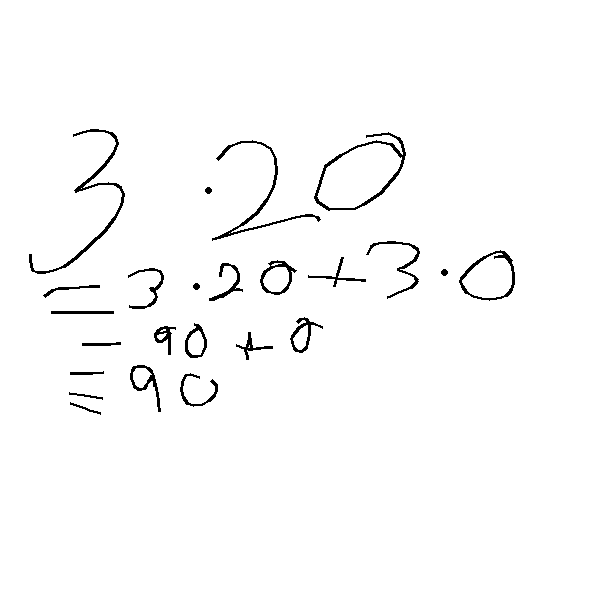 3 · 20
= 3 · 20 + 3 · 0
= 90 + 0
= 90